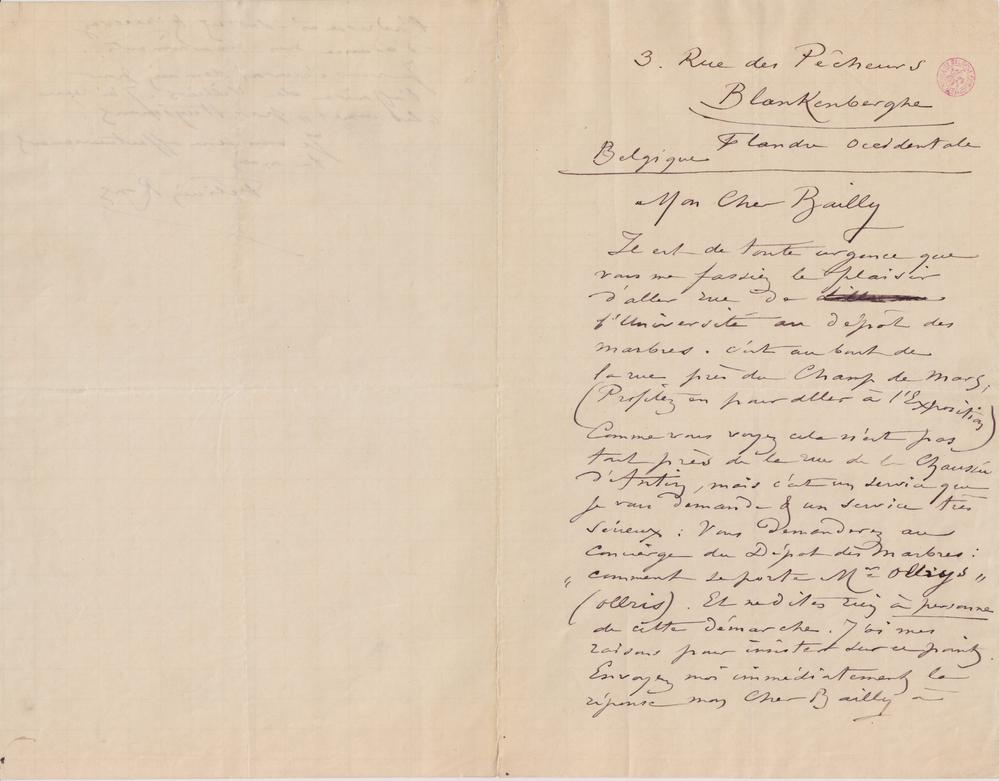 3. Rue des Pêcheurs
Blankenberghe
Flandre Occidentale
Belgique
Mon Cher Bailly
Il est de toute urgence que
vous me fassiez le plaisir
d'aller rue de
l'Université au dépôt des
marbres. c'est au bout de
la rue près du Champ de Mars,
(Profitez en pour aller à l'Exposition)
Comme vous voyez cela n'est pas
tout près de la rue de la Chaussée
d'Antin, mais c'est un service que
je vous demande & un service très
sérieux : Vous demanderez au
concierge du Dépot des Marbres :
"comment se porte Mr Ollrys"
(Ollris). Et ne dites rien à personne
de cette démarche. J'ai mes
raisons pour insister sur ce point.
Envoyez moi immédiatement la
réponse mon Cher Bailly à